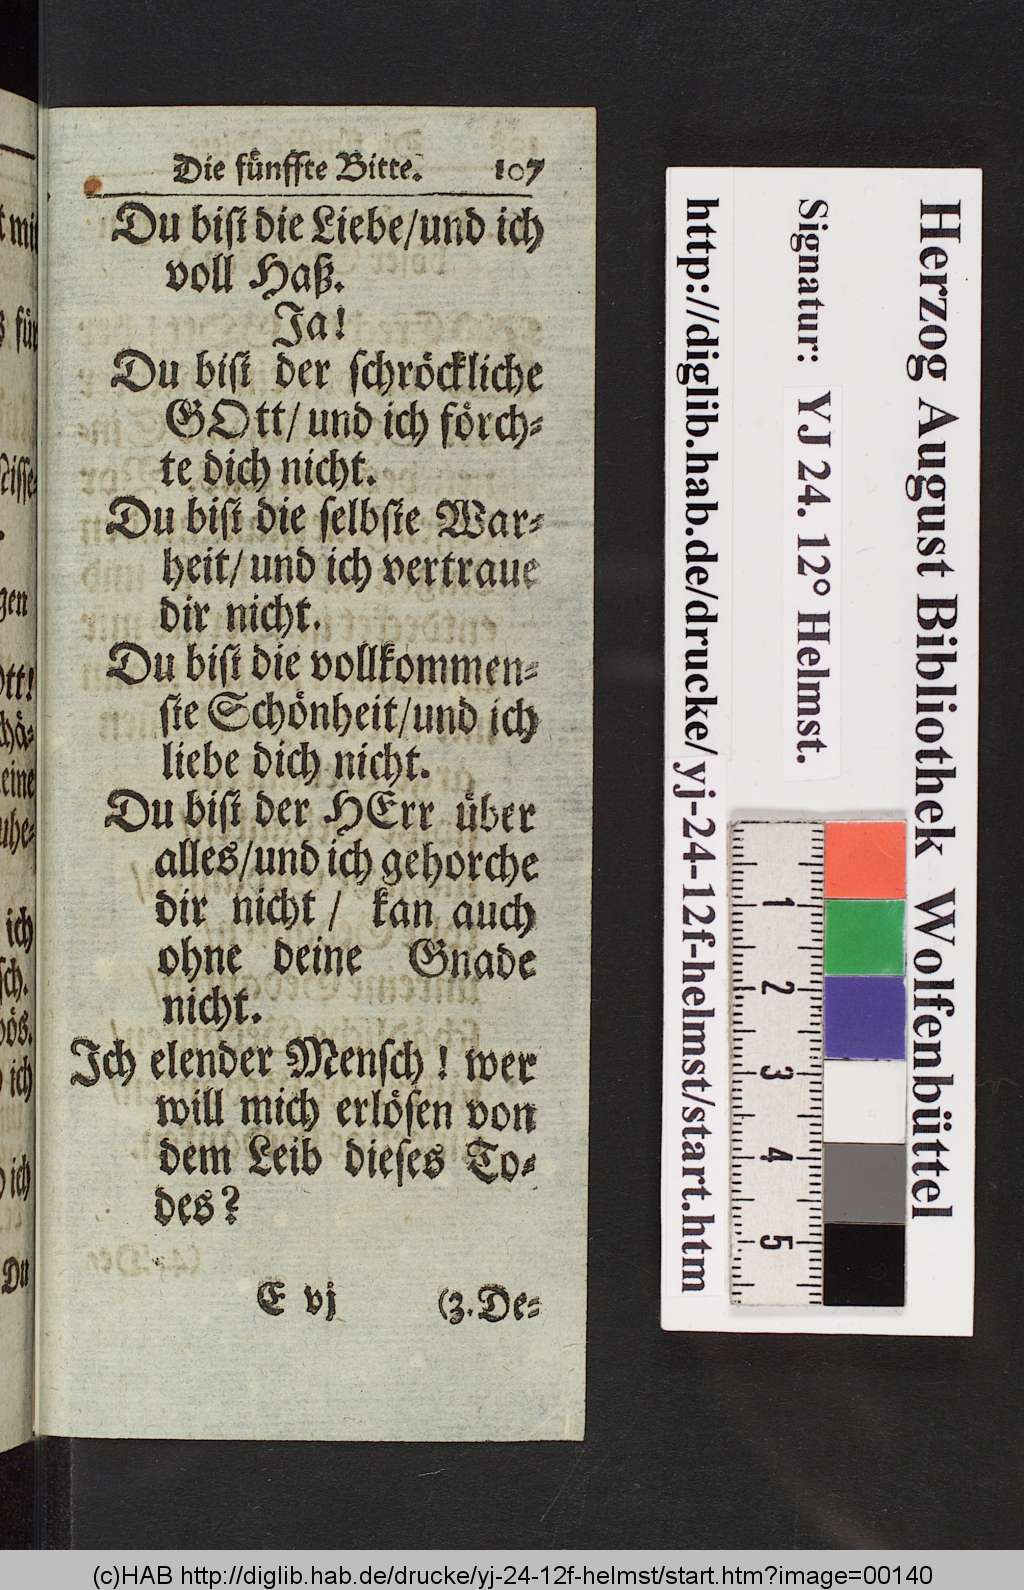 Die fünffte Bitte. 107
Du bist die Liebe/und ich
voll Haß.
Ja!
Du bist der schröckliche
GOtt/ und ich förch⸗
te dich nicht.
Du bist die selbste War⸗
heit/ und ich vertraue
dir nicht.
Du bist die vollkommen⸗
ste Schönheit/und ich
liebe dich nicht.
Du bist der HErr über
alles/und ich gehorche
dir nicht / kan auch
ohne deine Gnade
nicht.
Ich elender Mensch ! wer
will mich erlösen von
dem Leib dieses To⸗
des?
E vj (3. De⸗
Herzog August Bibliothek Wolfenbüttel
Signatur: YJ 24. 12° Helmst.
http://diglib.hab.de/drucke/yj-24-12f-helmst/start.htm
1
2
3
4
5
mit
für
gen
ott!
eine
ich
ich
ich
Du
(c)HAB http://diglib.hab.de/drucke/yj-24-12f-helmst/start.htm?image=00140